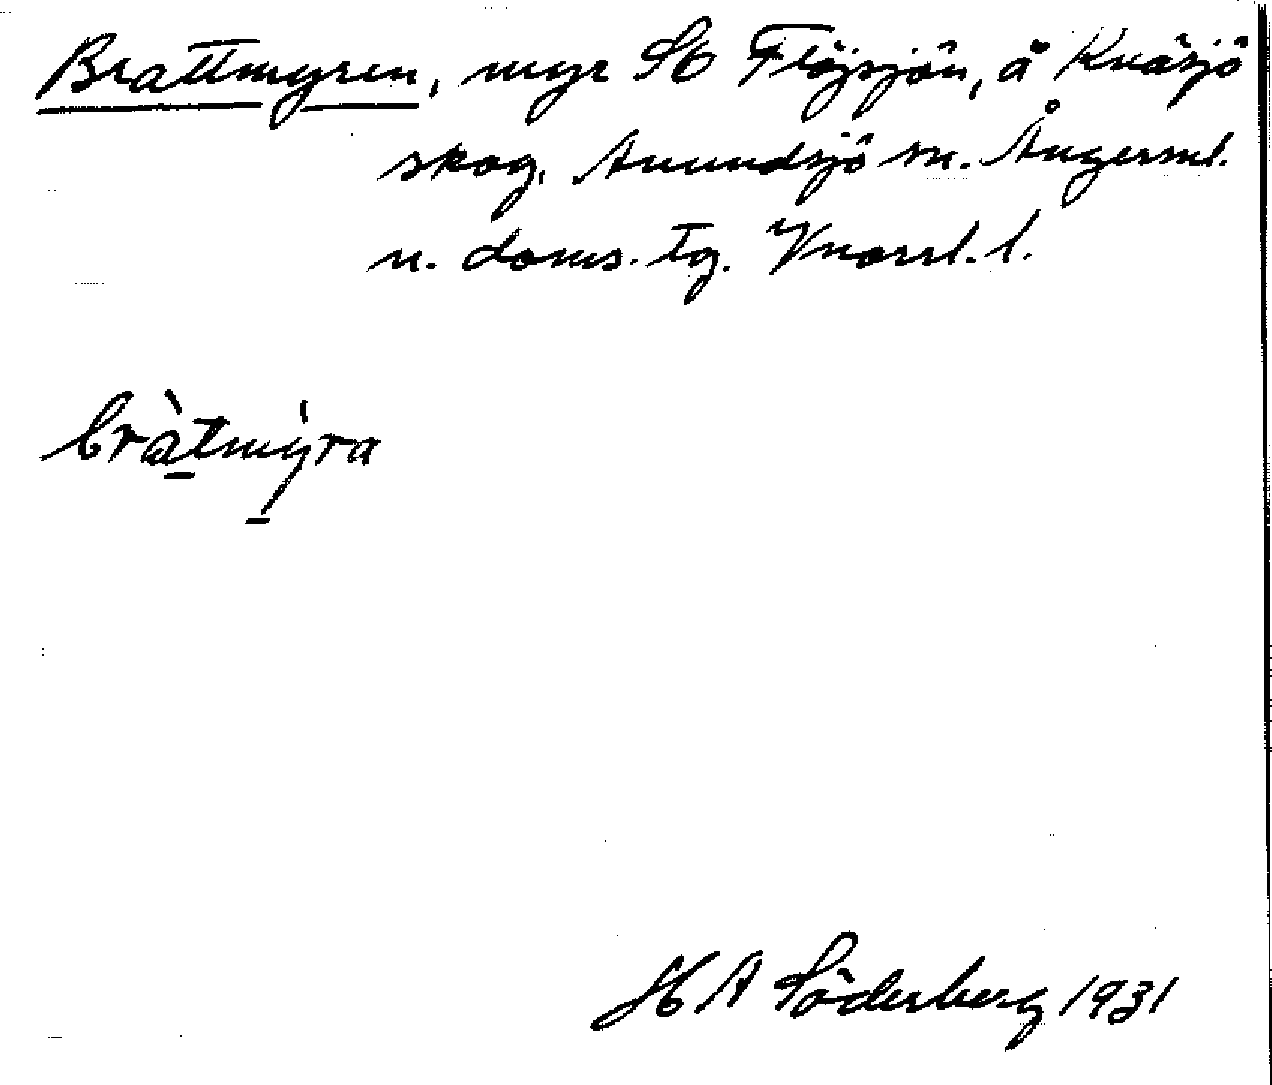 Brattmyren, myr SO Flöjsjön, å Knäsjö
skog, Anundsjö sn. Ångerml.
n. doms. tg. Vnorrl. l.
bràtmýra
H A Söderberg 1931